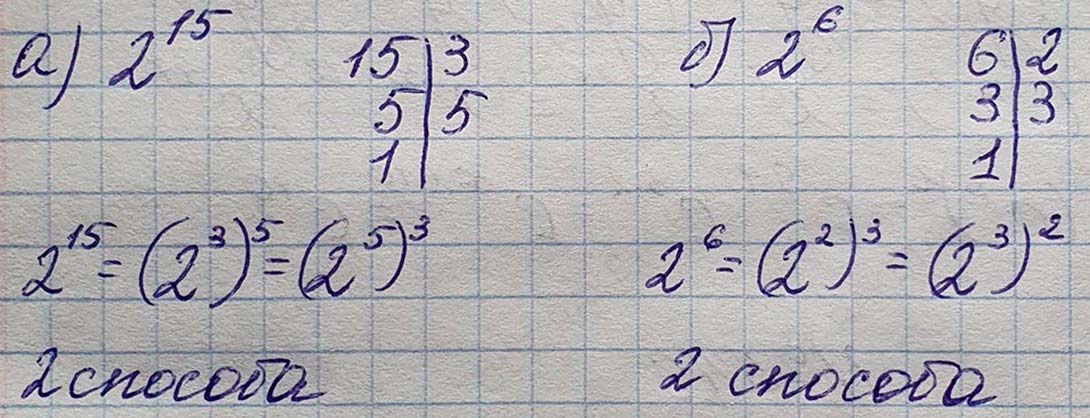 а) 2^15 15 | 3 б) 2^6 6 | 2
5 | 5 3 | 3
1 | 1 |
2^15 = (2^3)^5 = (2^5)^3 2^6 = (2^2)^3 = (2^3)^2
2 способа 2 способа